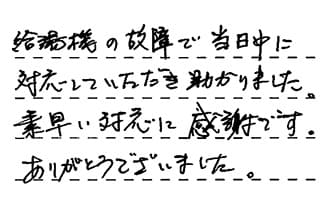 給湯機の故障で当日中に
対応していただき助かりました。
素早い対応に感謝です。
ありがとうございました。